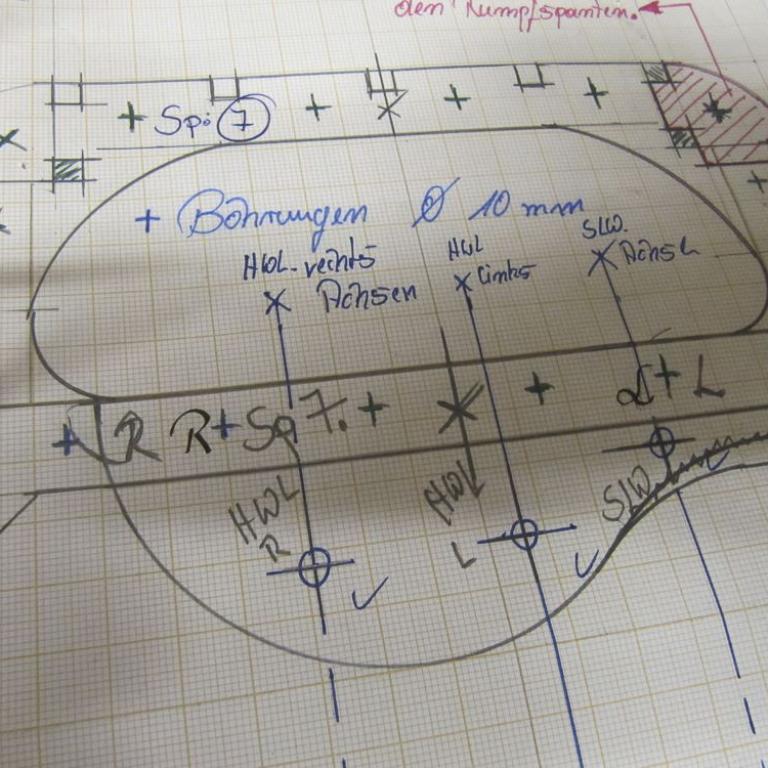 den Rumpfspanten.
+ Spi 7 + + +
+ Bohrungen Ø 10 mm
HWL-rechts
Achsen
HWL
links
SLW.
Achse
+ R R + Sp 7. + + L + L
HWL
R
HWL
L
SLW